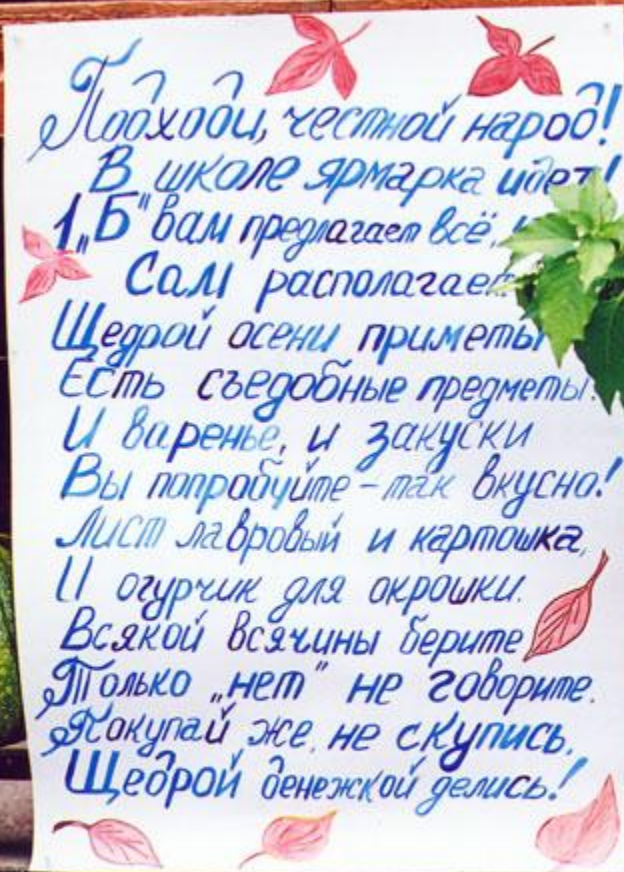 Подходи, честной народ!
В школе ярмарка идет!
1 „Б" вам предлагает всё,
Сам располагает
Щедрой осени приметы
Есть съедобные предметы.
И варенье, и закуски
Вы попробуйте - так вкусно!
Лист лавровый и картошка,
И огурчик для окрошки.
Всякой всячины берите
Только „нет" не говорите.
Покупай же, не скупись,
Щедрой денежкой делись!